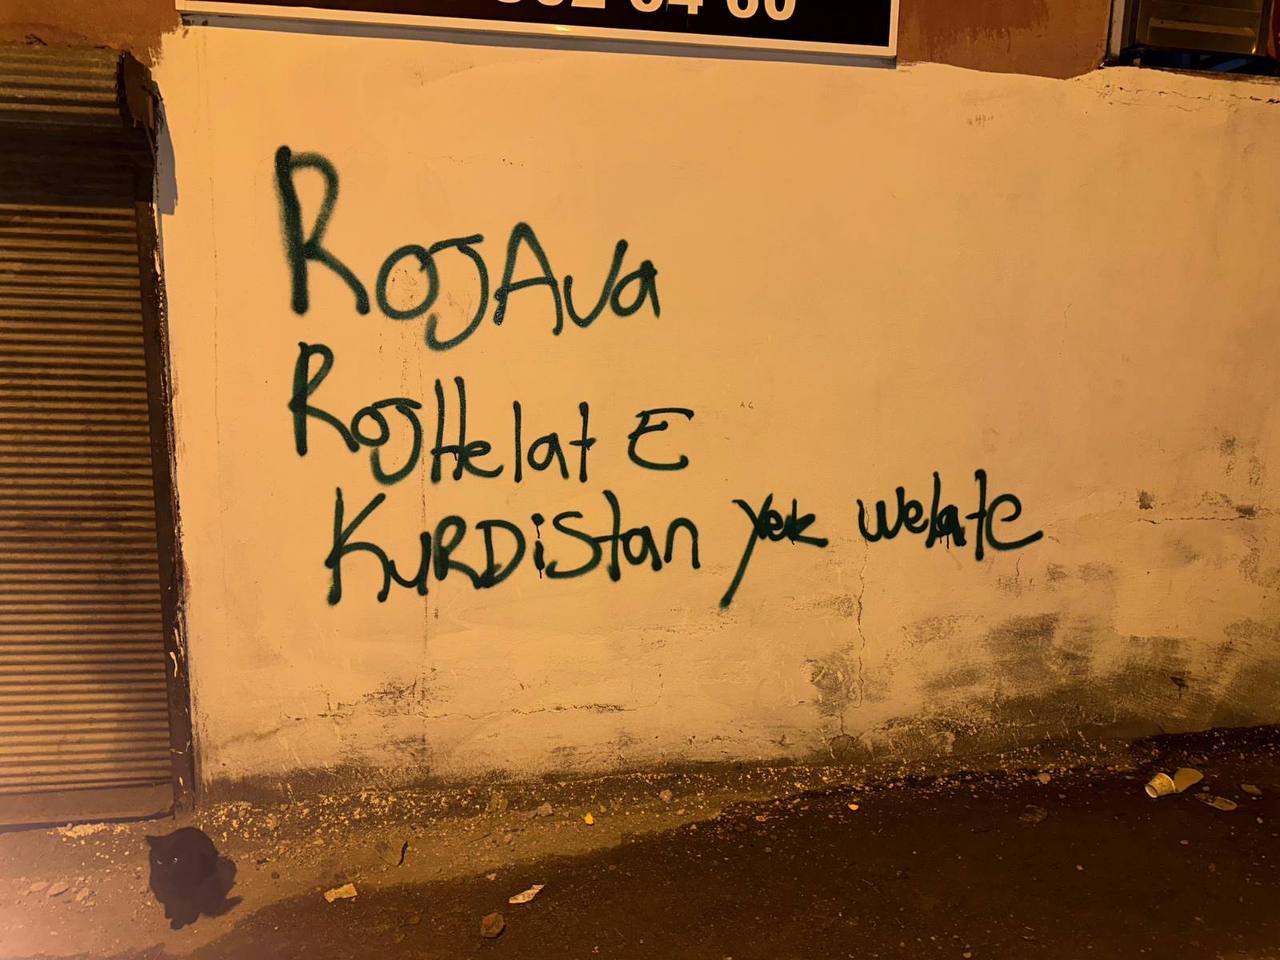 RoJAva
RoJHelat E
KURDiStan Yek Welate